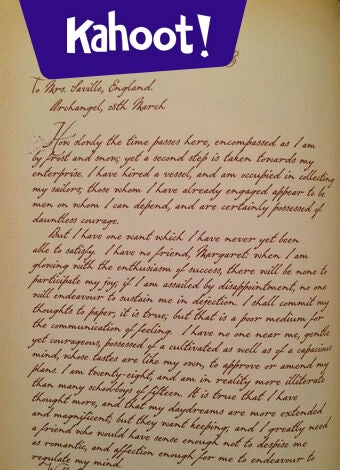 Kahoot!
To Mrs. Saville, England.
Archangel, 28th March
How slowly the time passes here, encompassed as I am
by frost and snow; yet a second step is taken towards my
enterprise. I have hired a vessel, and am occupied in collecting
my sailors; those whom I have already engaged appear to be
men on whom I can depend, and are certainly possessed of
dauntless courage.
But I have one want which I have never yet been
able to satisfy. I have no friend, Margaret: when I am
glowing with the enthusiasm of success, there will be none to
participate my joy; if I am assailed by disappointment, no one
will endeavour to sustain me in dejection. I shall commit my
thoughts to paper, it is true; but that is a poor medium for
the communication of feeling. I have no one near me, gentle
yet courageous, possessed of a cultivated as well as of a capacious
mind, whose tastes are like my own, to approve or amend my
plans. I am twenty-eight, and am in reality more illiterate
than many schoolboys of fifteen. It is true that I have
thought more, and that my daydreams are more extended
and magnificent, but they want keeping; and I greatly need
a friend who would have sense enough not to despise me
as romantic, and affection enough for me to endeavour to
regulate my mind.